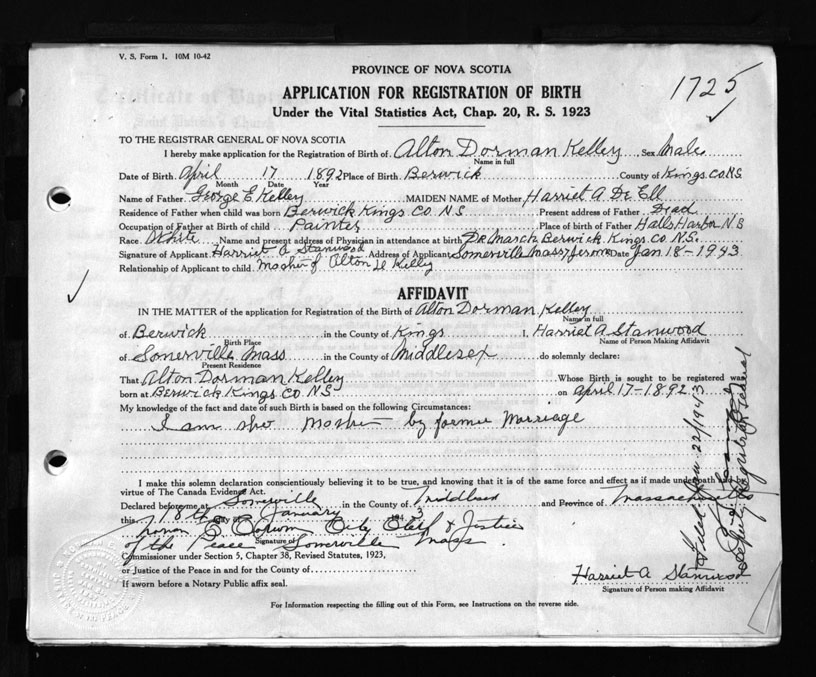 V. S. Form 1. 10M 10-42
1725
PROVINCE OF NOVA SCOTIA
APPLICATION FOR REGISTRATION OF BIRTH
Under the Vital Statistics Act, Chap. 20, R. S. 1923
TO THE REGISTRAR GENERAL OF NOVA SCOTIA
I hereby make application for the Registration of Birth of Alton Dorman Kelley Sex Male
Name in full
Date of Birth April 17 1892 Place of Birth Berwick County of Kings Co N.S
Month Date Year
Name of Father George E Kelley MAIDEN NAME of Mother Harriet A De Ell
Residence of Father when child was born Berwick Kings Co N S Present address of Father Dead
Occupation of Father at Birth of child Painter Place of birth of Father Halls Harbor N S
Race White Name and present address of Physician in attendance at birth Dr Marsh Berwick Kings Co N.S.
Signature of Applicant Harriet A Stanwood Address of Applicant Somerville Mass 7 Date Jan 18-1943
Relationship of Applicant to child Mother of Alton D Kelley
AFFIDAVIT
IN THE MATTER of the application for Registration of the Birth of Alton Dorman Kelley
Name in full
of Berwick in the County of Kings I, Harriet A Stanwood
Birth Place Name of Person Making Affidavit
of Somerville Mass in the County of Middlesex do solemnly declare:
Present Residence
That Alton Dorman Kelley Whose Birth is sought to be registered was
born at Berwick Kings Co N S on April 17-1892
My knowledge of the fact and date of such Birth is based on the following Circumstances:
I am the Mother by former Marriage
I make this solemn declaration conscientiously believing it to be true, and knowing that it is of the same force and effect as if made under oath and by
virtue of The Canada Evidence Act.
Declared before me at Somerville in the County of Middlesex and Province of Massachusetts
this 18th day of January
City Clerk & Justice
of the Peace Somerville Mass.
Signature of
Commissioner under Section 5, Chapter 38, Revised Statutes, 1923,
or Justice of the Peace in and for the County of
If sworn before a Notary Public affix seal.
Harriet A Stanwood
Signature of Person making Affidavit
For Information respecting the filling out of this Form, see Instructions on the reverse side.
Filed Jan 22/1943